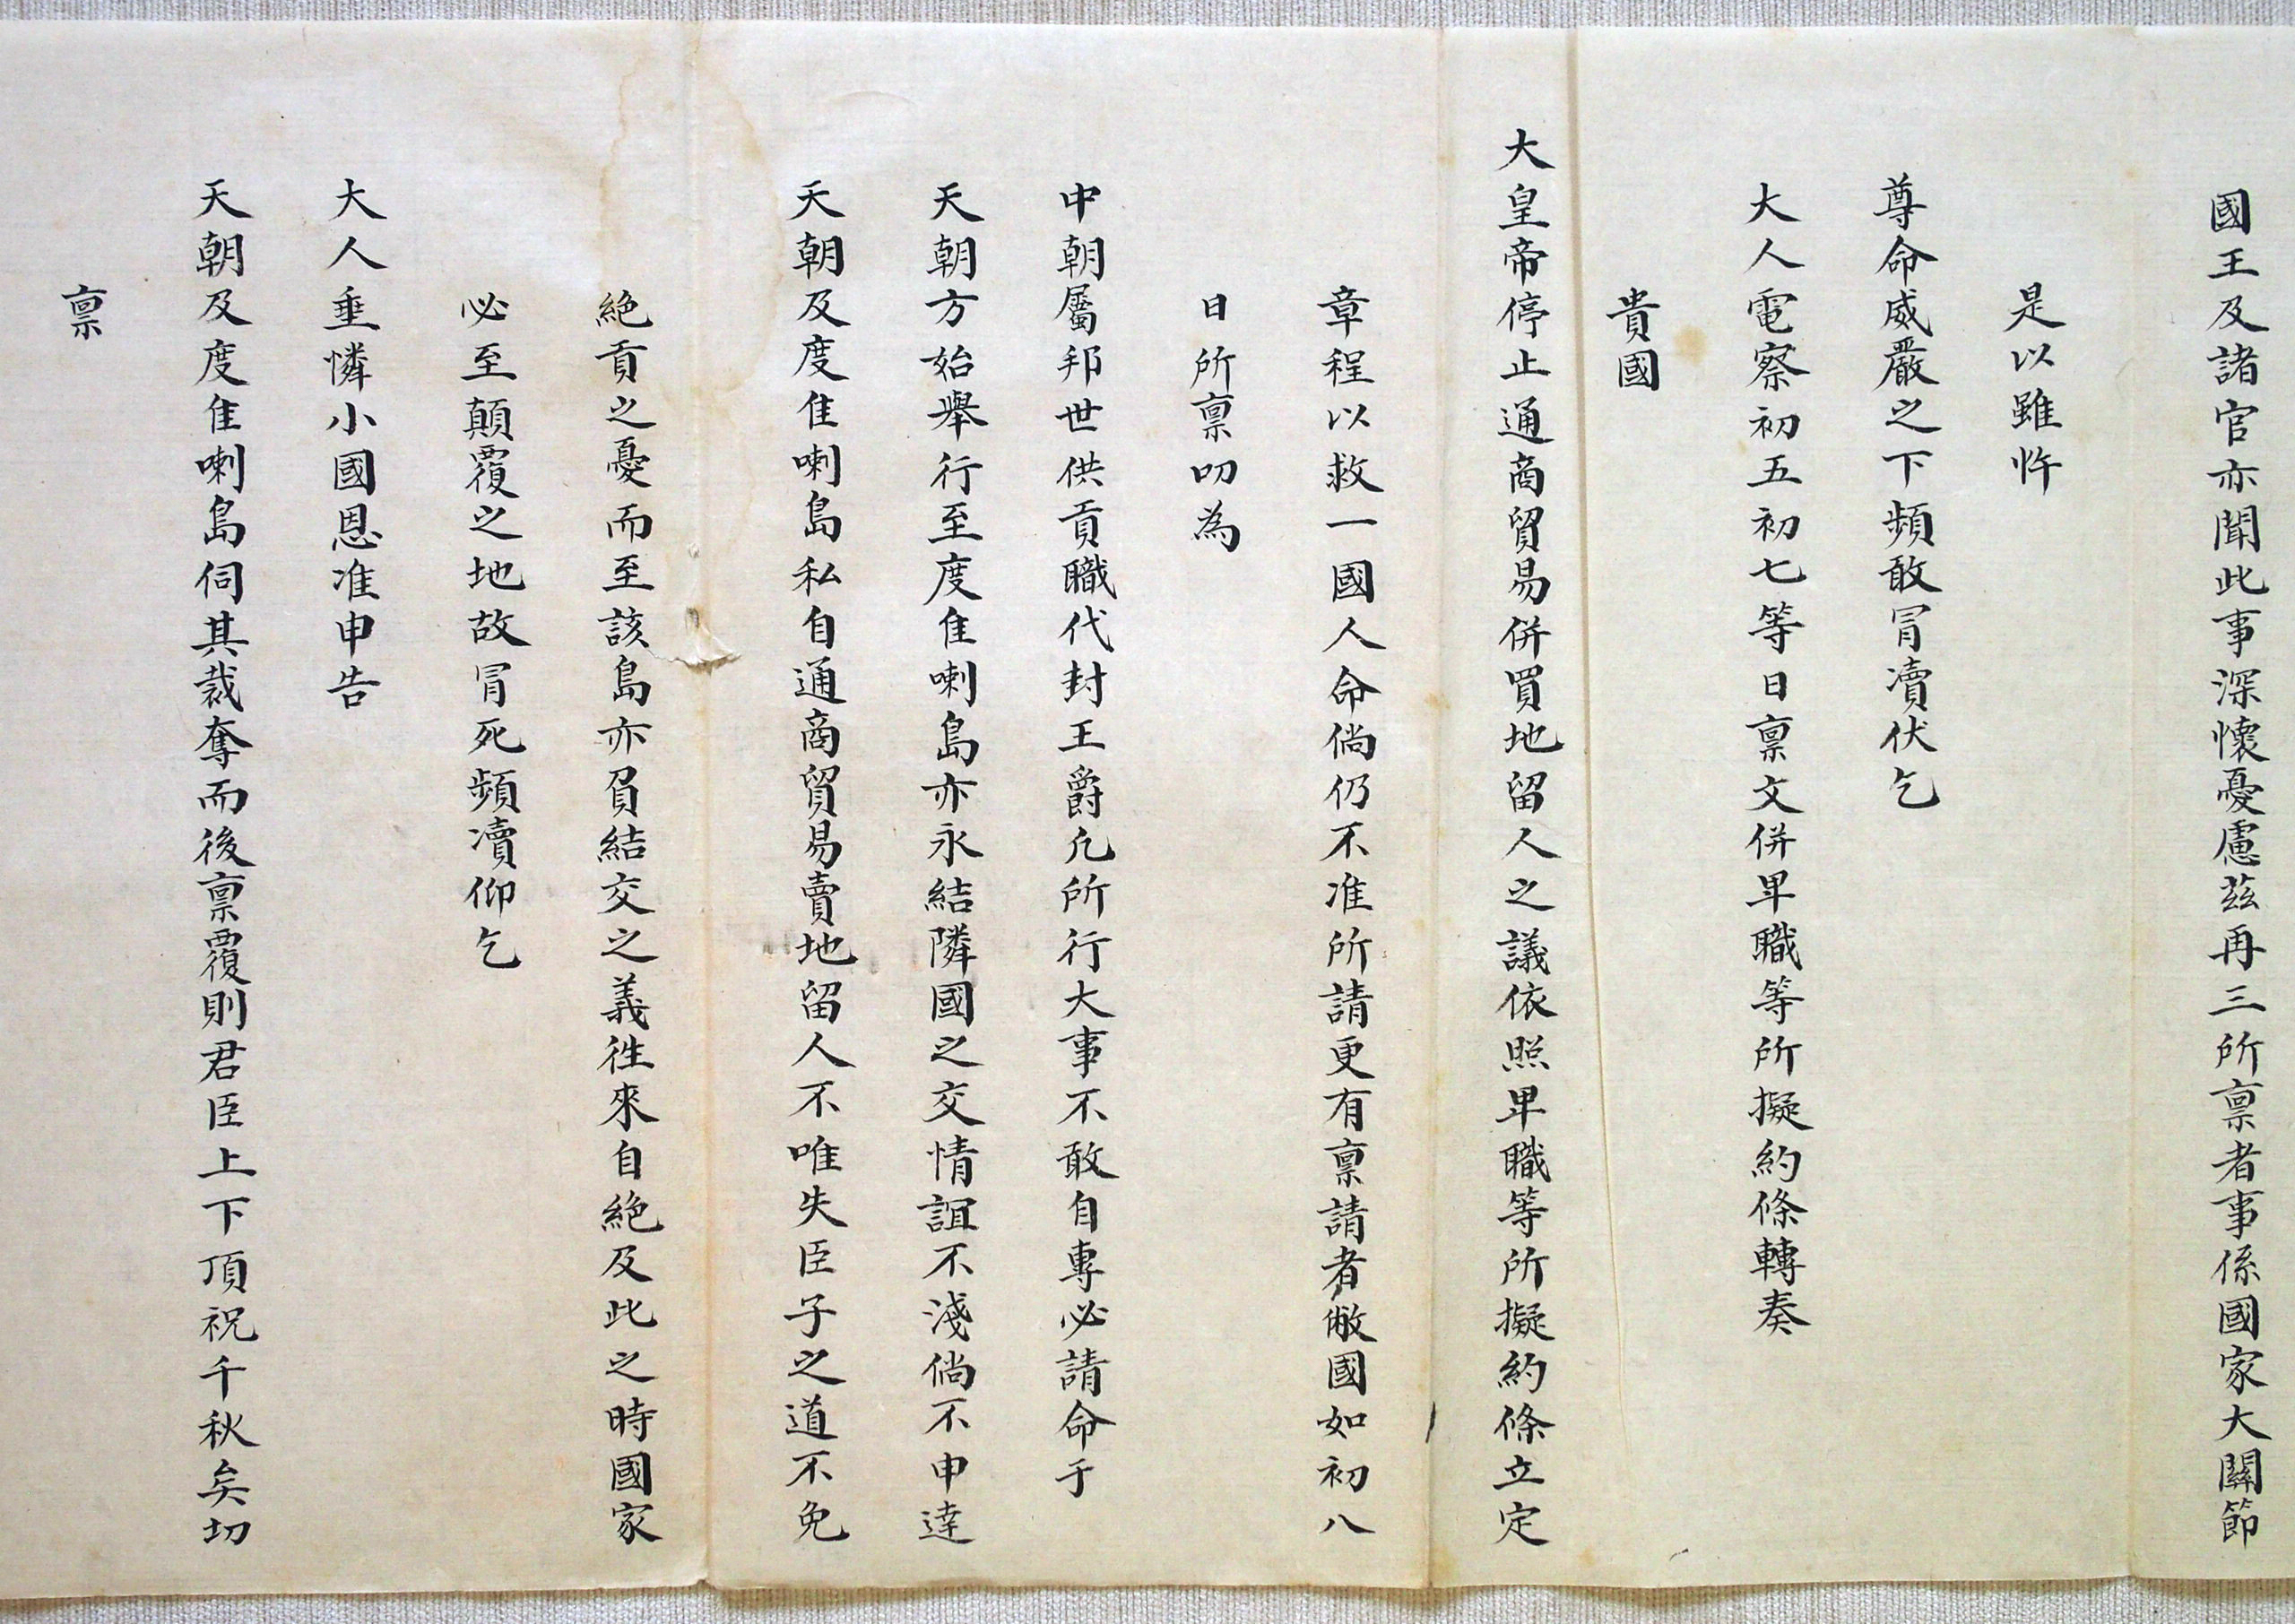 國王及諸官亦聞此事深懷憂慮茲再三所稟者事係國家大關節
是以雖忤
尊命威嚴之下頻敢冐瀆伏乞
大人電察初五初七等日稟文併卑職等所擬約條轉奏
貴國
大皇帝停止通商貿易併買地留人之議依照卑職等所擬約條立定
章程以救一國人命倘仍不准所請更有稟請者敝國如初八
日所稟叨為
中朝屬邦世供貢職代封王爵凢所行大事不敢自專必請命于
天朝方始舉行至度隹喇島亦永結隣國之交情誼不淺倘不申達
天朝及度隹喇島私自通商貿易賣地留人不唯失臣子之道不免
絶貢之憂而至該島亦負結交之義徃來自絶及此之時國家
必至顛覆之地故冐死頻瀆仰乞
大人垂憐小國恩准申告
天朝及度隹喇島伺其裁奪而後稟覆則君臣上下頂祝千秋矣切
稟